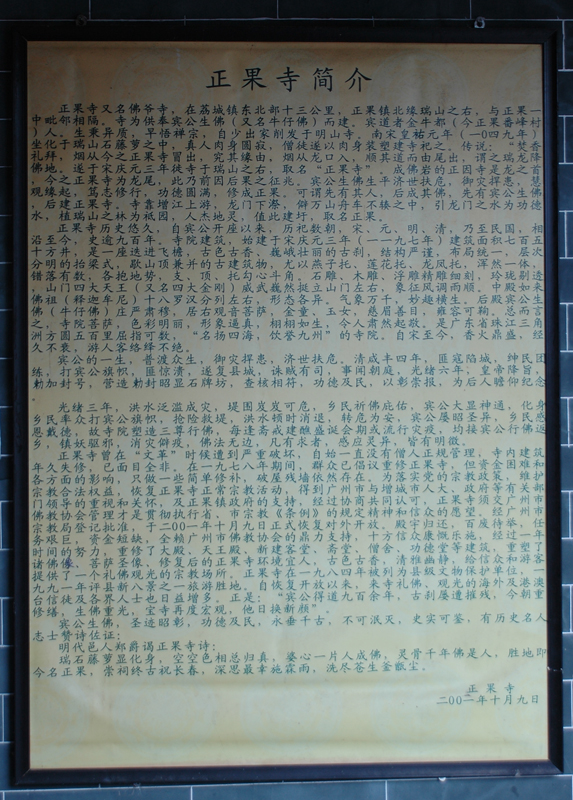 正果寺简介
正果寺又名佛爷寺，在荔城镇东北部十三公里，正果镇北缘瑞山之右，与正果一
中毗邻相隔。寺为供奉宾公生佛（又名牛仔佛）而建，宾道者金牛都（今正果番峰村
）人。生秉异质，早悟禅宗，自少出家削发于明山寺。南宋皇祐元年（一0四九年）
坐化于瑞山石藤萝之中，真人肉身圆寂，僧徒遂以肉身装塑建寺祀之。传说：“焚香
礼拜，烟从今之正果寺冒出，究其缘由，烟从龙口入，顺其道而由尾出，谓之瑞龙降
佛地，遂于宋庆元三年徒寺于瑞山之右，取名“正果寺”。成佛岩的正因寺是龙之首
，今之正果寺为龙尾，此乃前因后果之征兆。宾公生佛生平济世扶危，御灾捍患，慧
观缘起，笃志修行，功德圆满，修成正果。可谓先有其人，后成其佛，先有宾公生佛
，后建正果寺。寺靠增江上游，龙门下滂，僻万山舟车不辏之中，引龙门之水为功德
水，植瑞山之林为祗园，人杰地灵，值此建圩，取名正果。
正果寺历史悠久，自宾公开座以来，历祀数朝，宋、元、明、清，乃至民国，相
沿至今，史逾九百年。寺院建筑，始建于宋庆元三年（一一九七年）建筑面积七百五
十方井，是一座迭进飞檐，古色古香，巍峨壮丽的古刹，结构严谨，布局统一，层次
分明的抬梁式，歇山顶兼开的古建筑物，尤以燕子托、莲花托、龙凤托，浑然一体，
错落有数，各抱地势，支、顶、托勾心斗角，石雕、木雕，浮雕精雕细刻，玲珑剔透
，山门四大天王（又名四大金刚）威武巍然挺立山门左右，象征风调雨顺，中殿如来
佛祖（释迦牟尼）十八罗汉分列左右，形态各异，气象万千，妙趣横生。后殿宾公生
佛（牛仔佛）庄严肃穆，居右观音菩萨，金童，玉女，慈眉善目，雍容可鞠，总而言
之，寺院菩萨，色彩明丽，形象逼真，栩栩如生，令人肃然起敬。是广东省珠江三角
洲方圆五百里屈指可数，“名扬四海，饮誉九州”的寺院，自宋至今，香火鼎盛，经
久不衰，游人客络绎不绝。
宾公的一生，普渡众生，御灾捍患，济世扶危，清咸丰四年，匪寇陷城，绅民团
练，打宾公旗帜，匪惊溃，遂复县城，诛贼有司，事闻朝庭，光绪六年，皇帝降旨，
勅加封号，营造勅封昭显石牌坊，查核相符，功德及民，以彰崇报，为后人瞻仰纪念
。
光绪三年，洪水泛滥成灾，堤围岌岌可危，乡民祈佛庇佑，宾公大显神通，化身
乡民率众打宾公旗帜，抢险救堤，洪水顿时消退，转危为安，宾公屡昭圣异，乡民感
恩戴德，奴寺院塑造三尊行佛，每逢斋戒建醮盛诞会期或流行灾疫，均接宾公行佛返
乡，镇妖驱邪，消灾僻疫，佛法无边，凡有求者，感应灵异，皆有明徵。
正果寺曾在“文革”时候遭到严重破坏，自始一直没有僧人正规管理，寺内建筑
年久失修，已面目全非，在一九七八年期间，群众已倡议重修正果寺，但资金困难和
各方面的影响，只做一些简单修补，破屋残墙依然存在，为落实党的宗教政策，维护
宗教合法权益，恢复正果寺正常宗教活动，得到广州市与增城市人大、政府等有关部
门领导的重视和关怀，及正果镇政府的支持，经过协商共同认可，正果寺须交广州市
佛教协会管理才是贯彻执行省、市宗教《条例》的规定精神和信众的愿望。经广州市
宗教局登记批准，于二00一年十月九日正式恢复对外开放，殿宇归还，百废待举，任
务艰巨，资金短缺，全赖广州市佛教协会的鼎力支持，十方信众康慨乐施，经过一年
时间的努力，重修了大殿，天王殿，新建客堂，斋堂，僧舍，功德堂等建筑，重塑了
诸佛像，菩萨圣像，修复后的正果寺环境宜人，古色古香，清雅幽静，给信众和游客
提供了一个礼佛观光的宗教场所。正果寺在一九八四年被列为县级文物保护单位，一
九九一年评县新八景之一旅游胜地，自恢复开放以来，来寺礼佛，观光的海外及港澳
台信徒及各界人士也日益增多。正是：“宾公得道九百余年，古刹屡遭摧残，今朝重
修缮，生佛重光，宝寺再度宏观，他日换新颜”。
宾公生佛，圣迹昭彰，功德及民，永垂千古，不可泯灭，史实可鉴，有历史名人
志士赞诗佐证：
明代邑人郑爵谒正果寺诗：
瑞石藤萝显化身，空空色相总归真，婆心一片人成佛，灵骨千年佛是人，胜地即
今名正果，崇祠终古祝长春，深思最幸施霖雨，洗尽苍生釜甑尘。
正果寺
二00一年十月九日